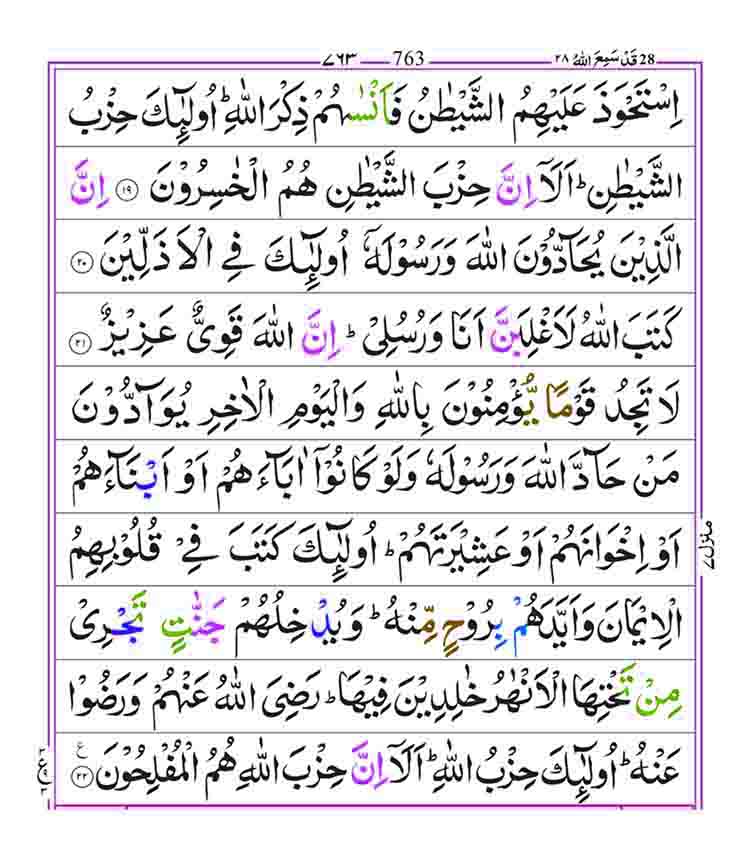 28 قَدْ سَمِعَ اللّٰهُ ٢٨ 763 ٧٦٣
اِسْتَحْوَذَ عَلَيْهِمُ الشَّيْطٰنُ فَاَنْسٰىهُمْ ذِكْرَ اللّٰهِ ؕ اُولٰٓئِكَ حِزْبُ
الشَّيْطٰنِ ؕ اَلَاۤ اِنَّ حِزْبَ الشَّيْطٰنِ هُمُ الْخٰسِرُوْنَ ١٩ اِنَّ
الَّذِيْنَ يُحَآدُّوْنَ اللّٰهَ وَرَسُوْلَهٗۤ اُولٰٓئِكَ فِي الْاَذَلِّيْنَ ٢٠
كَتَبَ اللّٰهُ لَاَغْلِبَنَّ اَنَا وَرُسُلِىْ ؕ اِنَّ اللّٰهَ قَوِىٌّ عَزِيْزٌ ٢١
لَا تَجِدُ قَوْمًا يُّؤْمِنُوْنَ بِاللّٰهِ وَالْيَوْمِ الْاٰخِرِ يُوَآدُّوْنَ
مَنْ حَآدَّ اللّٰهَ وَرَسُوْلَهٗ وَلَوْ كَانُوْۤا اٰبَآءَهُمْ اَوْ اَبْنَآءَهُمْ
اَوْ اِخْوَانَهُمْ اَوْ عَشِيْرَتَهُمْ ؕ اُولٰٓئِكَ كَتَبَ فِىْ قُلُوْبِهِمُ
الْاِيْمَانَ وَاَيَّدَهُمْ بِرُوْحٍ مِّنْهُ ؕ وَيُدْخِلُهُمْ جَنّٰتٍ تَجْرِىْ
مِنْ تَحْتِهَا الْاَنْهٰرُ خٰلِدِيْنَ فِيْهَا ؕ رَضِىَ اللّٰهُ عَنْهُمْ وَرَضُوْا
عَنْهُ ؕ اُولٰٓئِكَ حِزْبُ اللّٰهِ ؕ اَلَاۤ اِنَّ حِزْبَ اللّٰهِ هُمُ الْمُفْلِحُوْنَ ٢٢ ع
منزل ٧
ع